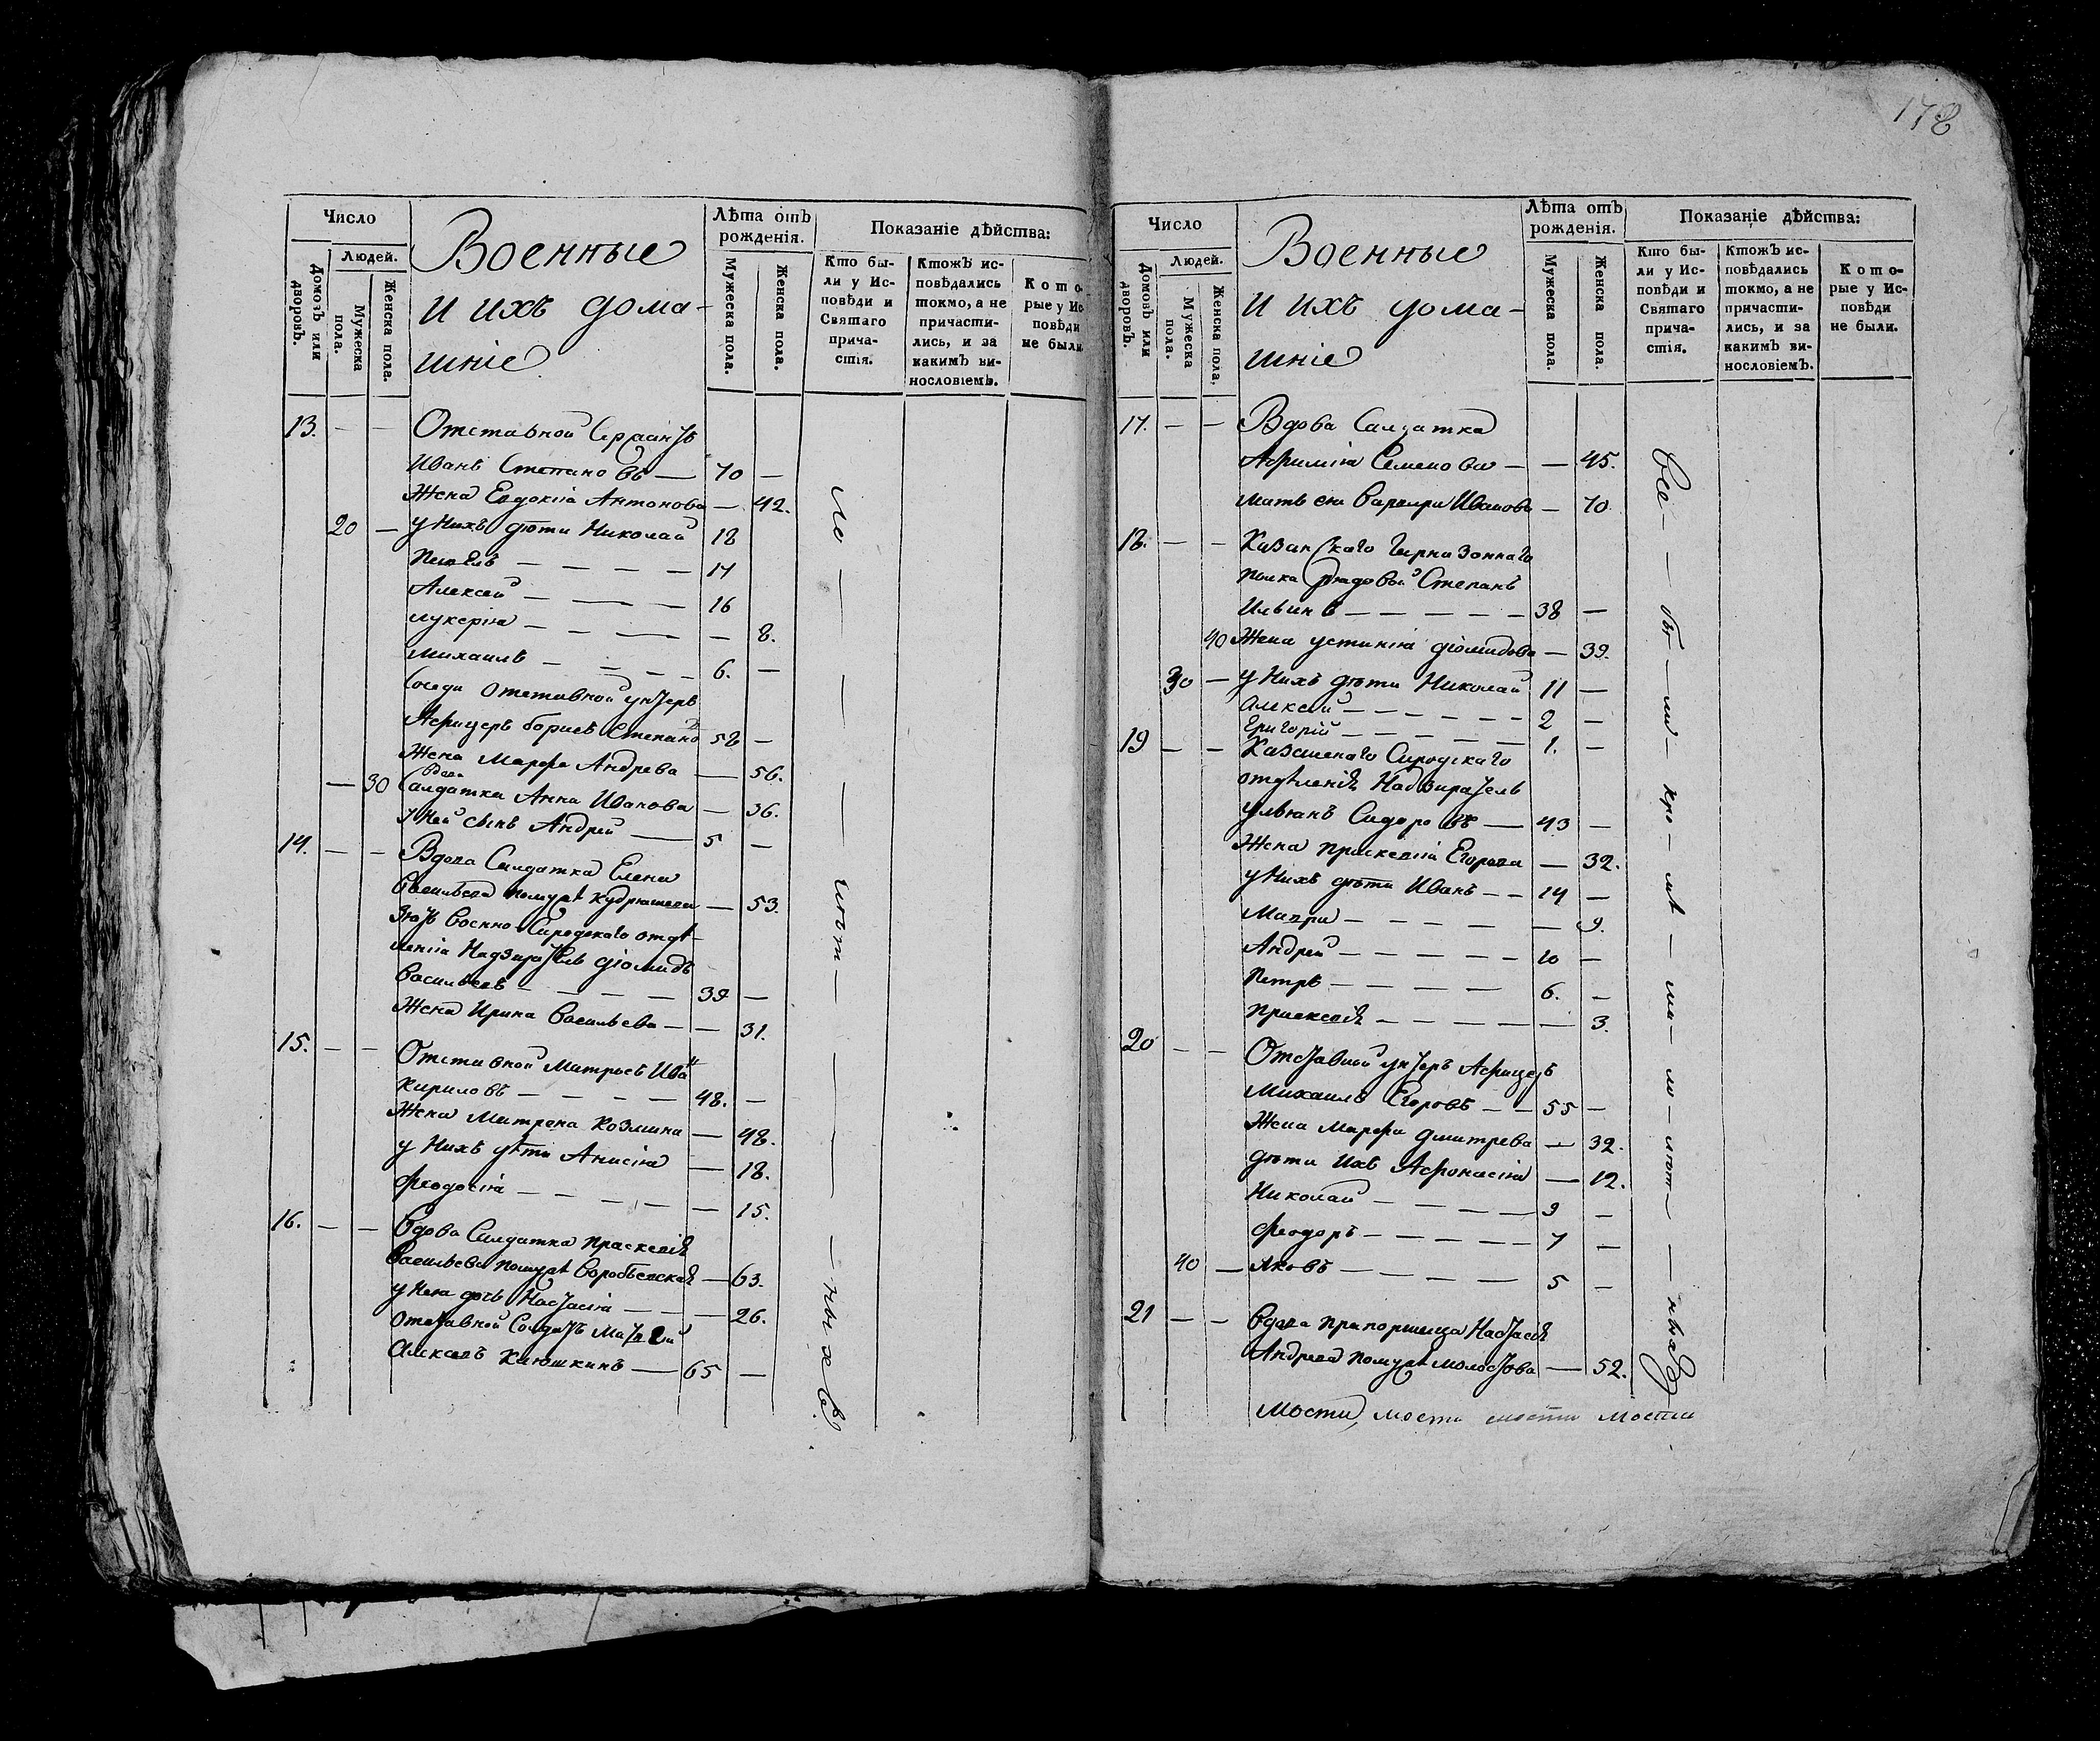 Число
Людей.
Домовъ или дворовъ.
Мужеска пола.
Женска пола.
Военные
и ихъ дома-
шніе
Лѣта отъ рожденія.
Мужеска пола.
Женска пола.
Показаніе дѣйства:
Кто бы-
ли у Ис-
повѣди и
Святаго
прича-
стія.
Ктожъ ис-
повѣдались
токмо, а не
причасти-
лись, и за
какимъ ви-
нословіемъ.
Кото-
рые у Ис-
повѣди
не были.
13. — — Отставной Сержантъ
Иванъ Степановъ — 70 —
Жена Евдокіа Антонова — 42.
20 — у Нихъ дѣти Николай 18
Павелъ — — — — 17
Алексей — — — — 16
Лукеріа — — — — — 8.
Михаилъ — — — — 6. —
Соседи отставной унтеръ
Афицеръ Борисъ Степановъ 58 —
Жена Марфа Андрева — 56.
— 30 вдова Салдатка Анна Иванова — 36.
у Ней сынъ Андрей — 5 —
14. — — Вдова Салдатка Елена
Васильева — 53.
Зять Военно Сиродскаго отдѣ-
леніа Надзиратель Діомидъ
Васильевъ — — — — 39 —
Жена Ирина Васильева — — 31.
15. — — Отставной Матросъ Иванъ
Кириловъ — — — — 48. —
Жена Матрена Козмина — 48.
у Нихъ дѣти Анисіа — 18.
Феодосіа — — — — — 15.
16. — — Вдова Салдатка Праскевіа
Васильева — 63.
у Нея дочь Настасіа — — — 26.
отставной Солдатъ Матвей
Алексевъ Клюшкинъ — 65 —
ло — — — — игот — — — — ныхъ
178
Число
Людей.
Домовъ или дворовъ.
Мужеска пола.
Женска пола.
Военные
и ихъ дома-
шніе
Лѣта отъ рожденія.
Мужеска пола.
Женска пола.
Показаніе дѣйства:
Кто бы-
ли у Ис-
повѣди и
Святаго
прича-
стія.
Ктожъ ис-
повѣдались
токмо, а не
причасти-
лись, и за
какимъ ви-
нословіемъ.
Кото-
рые у Ис-
повѣди
не были.
17. — — Вдова Салдатка
Афиміа Семенова — — 45.
мать ея Варвара Иванова — 70
18. — — Казанскаго Гарнизоннаго
полка рядовой Степанъ
Ильинъ — — — — — 38 —
40 Жена устиніа Діомидова — 39.
30 — у Нихъ дѣти Николай 11 —
Алексей — — — — — 2 —
Григорій — — — — — 1. —
19 — — Казанскаго Сиродскаго
отдѣленія Надзиратель
ульянъ Сидоровъ — 43 —
Жена Праскевіа Егорова — 32.
у Нихъ дѣти Иванъ — — 14 —
Мавра — — — — — 9.
Андрей — — — — — 10 —
Петръ — — — — — 6. —
Праскевія — — — — — 3.
20 — — Отставной унтеръ Афицеръ
Михаилъ Егоровъ — — 55 —
Жена Марфа Дмитрева — 32.
дѣти ихъ Афонасіа — 12.
Николай — — — — 9 —
Феодоръ — — — — — 7 —
40 — Яковъ — — — — — 5 —
21 — — Вдова Прапорщица Настасія
Андрева — 52.
Все — — бы — ли — кро — мѣ — ма — ло — лѣт — — ныхъ
мости, мости мости мости